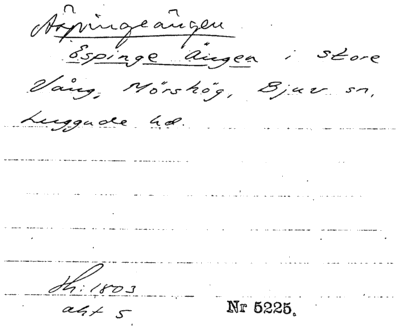 Äspingeängen
Espinge Ängen i Store
Vång, Mörshög, Bjuv sn,
Luggude hd.
Sk: 1803
akt 5
Nr 5225.